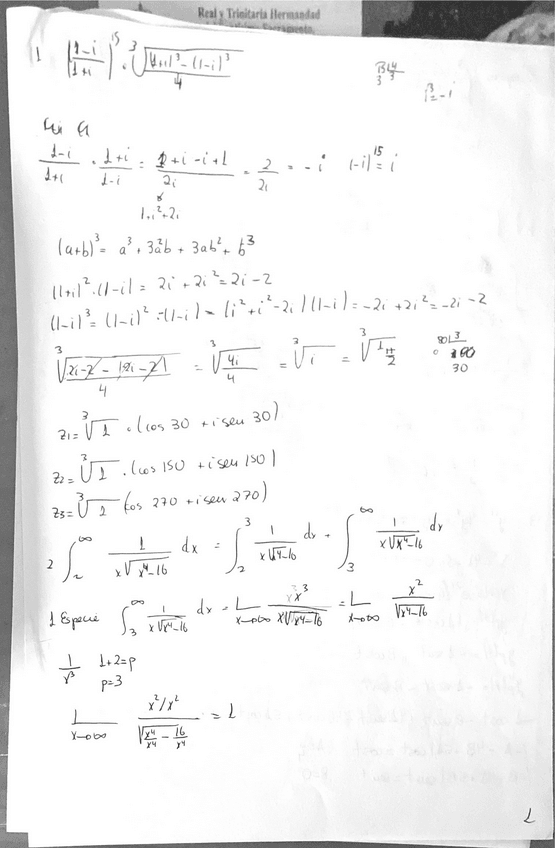 Real y Trinitaria Hermandad
Sacramento.
1 ((1-i)/(1+i))^15 · ∛(((1+i)^3-(1-i)^3)/4)
i^3=-i
(1-i)/(1+i) · (1+i)/(1-i) = (1+i-i+1)/2i = 2/2i = -i (-i)^15 = i
1+i^2+2i
(a+b)^3 = a^3 + 3a^2b + 3ab^2 + b^3
(1+i)^2·(1-i) = 2i + 2i^2 = 2i - 2
(1-i)^3 = (1-i)^2·(1-i) = (i^2+i^2-2i)(1-i) = -2i + 2i^2 = -2i - 2
∛((2i-2-(2i-2))/4) = ∛(4i/4) = ∛i = ∛(1_(π/2))
30
z1 = ∛1 · (cos 30 + i sen 30)
z2 = ∛1 · (cos 150 + i sen 150)
z3 = ∛1 (cos 270 + i sen 270)
2 ∫_2^∞ 1/(x√(x^4-16)) dx = ∫_2^3 1/(x√(x^4-16)) dx + ∫_3^∞ 1/(x√(x^4-16)) dx
1 Especie ∫_3^∞ 1/(x√(x^4-16)) dx = L_(x→∞) x^3/(x√(x^4-16)) = L_(x→∞) x^2/√(x^4-16)
1/x^3 1+2=p
p=3
L_(x→∞) (x^2/x^2)/√(x^4/x^4 - 16/x^4) = 1